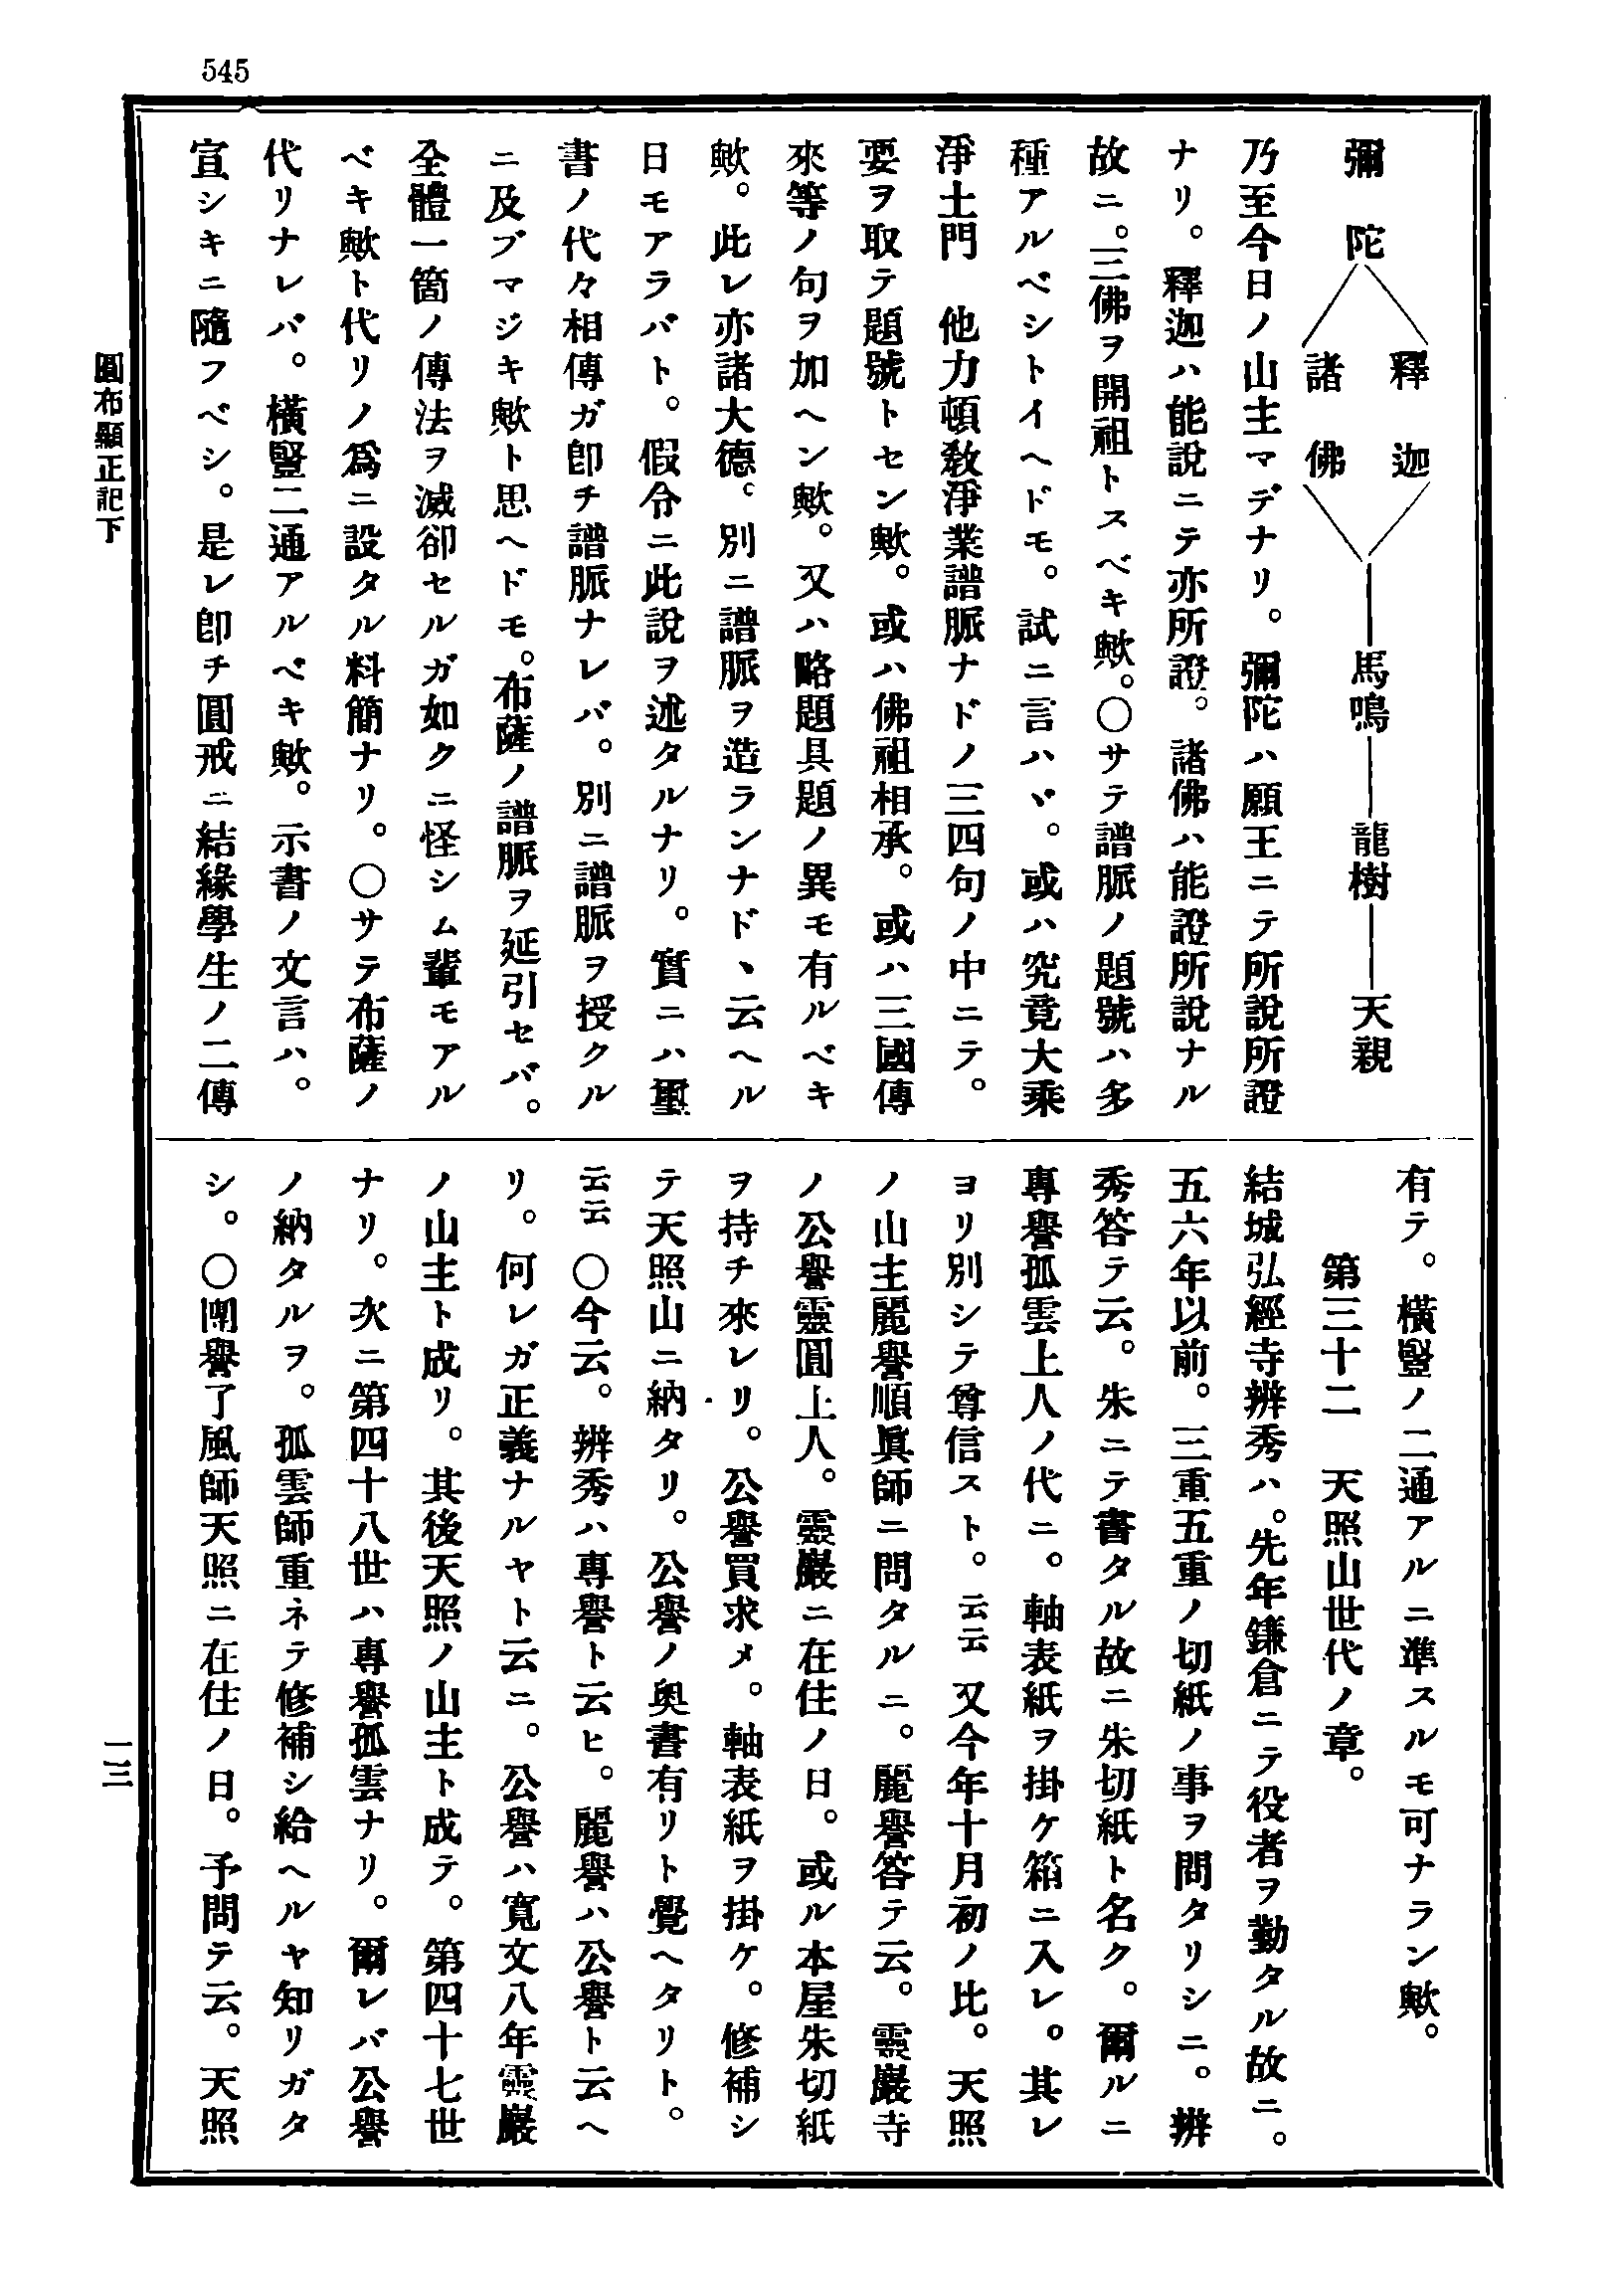 545
彌陀
釋迦
諸佛
馬鳴
龍樹
天親
乃至今日ノ山主マデナリ。彌陀ハ願王ニテ所說所證
ナリ。釋迦ハ能說ニテ亦所證。諸佛ハ能證所說ナル
故ニ。三佛ヲ開祖トスベキ歟。〇サテ譜脈ノ題號ハ多
種アルベシトイヘドモ。試ニ言ハヾ。或ハ究竟大乘
淨土門 他力頓教淨業譜脈ナドノ三四句ノ中ニテ。
要ヲ取テ題號トセン歟。或ハ佛祖相承。或ハ三國傳
來等ノ句ヲ加ヘン歟。又ハ略題具題ノ異モ有ルベキ
歟。此レ亦諸大德。別ニ譜脈ヲ造ランナドヽ云ヘル
日モアラバト。假令ニ此說ヲ述タルナリ。實ニハ璽
書ノ代々相傳ガ卽チ譜脈ナレバ。別ニ譜脈ヲ授クル
ニ及ブマジキ歟ト思ヘドモ。布薩ノ譜脈ヲ延引セバ。
全體一箇ノ傳法ヲ滅卻セルガ如クニ怪シム輩モアル
ベキ歟ト代リノ爲ニ設タル料簡ナリ。〇サテ布薩ノ
代リナレバ。橫豎二通アルベキ歟。示書ノ文言ハ。
宣シキニ隨フベシ。是レ卽チ圓戒ニ結緣學生ノ二傳
有テ。橫豎ノ二通アルニ準スルモ可ナラン歟。
第三十二 天照山世代ノ章。
結城弘經寺辨秀ハ。先年鎌倉ニテ役者ヲ勤タル故ニ。
五六年以前。三重五重ノ切紙ノ事ヲ問タリシニ。辨
秀答テ云。朱ニテ書タル故ニ朱切紙ト名ク。爾ルニ
專譽孤雲上人ノ代ニ。軸表紙ヲ掛ケ箱ニ入レ。其レ
ヨリ別シテ尊信スト。云云 又今年十月初ノ比。天照
ノ山主麗譽順眞師ニ問タルニ。麗譽答テ云。靈巖寺
ノ公譽靈圓上人。靈巖ニ在住ノ日。或ル本屋朱切紙
ヲ持チ來レリ。公譽買求メ。軸表紙ヲ掛ケ。修補シ
テ天照山ニ納タリ。公譽ノ奧書有リト覺ヘタリト。
云云 〇今云。辨秀ハ專譽ト云ヒ。麗譽ハ公譽ト云ヘ
リ。何レガ正義ナルヤト云ニ。公譽ハ寬文八年靈巖
ノ山主ト成リ。其後天照ノ山主ト成テ。第四十七世
ナリ。次ニ第四十八世ハ專譽孤雲ナリ。爾レバ公譽
ノ納タルヲ。孤雲師重ネテ修補シ給ヘルヤ知リガタ
シ。〇闡譽了風師天照ニ在住ノ日。予問テ云。天照
圓布顯正記下
一三